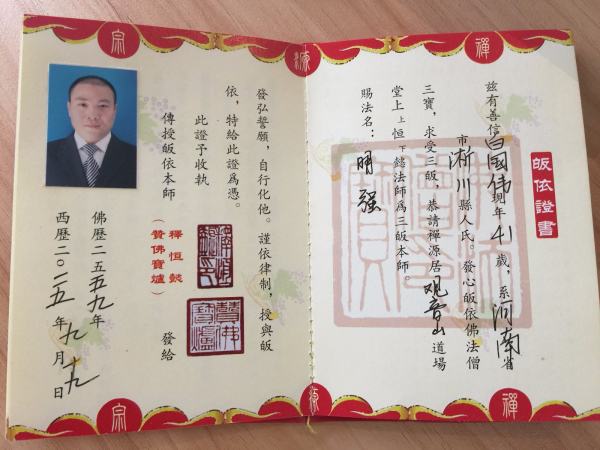 皈依證書
茲有善信白国伟現年41歲，系河南省
市淅川縣人氏。發心皈依佛法僧
三寶，求受三皈，恭請禪源居观音山道場
堂上上恒下懿法師為三皈本師。
賜法名：明强
發弘誓願，自行化他。謹依律制，授與皈
依，特給此證為憑。
此證予收執
傳授皈依本師
釋恒懿
（贊佛寶爐）
發給
佛歷二五五九年
西歷二〇一五年九月十九日
宗
源
禪
宗
源
禪